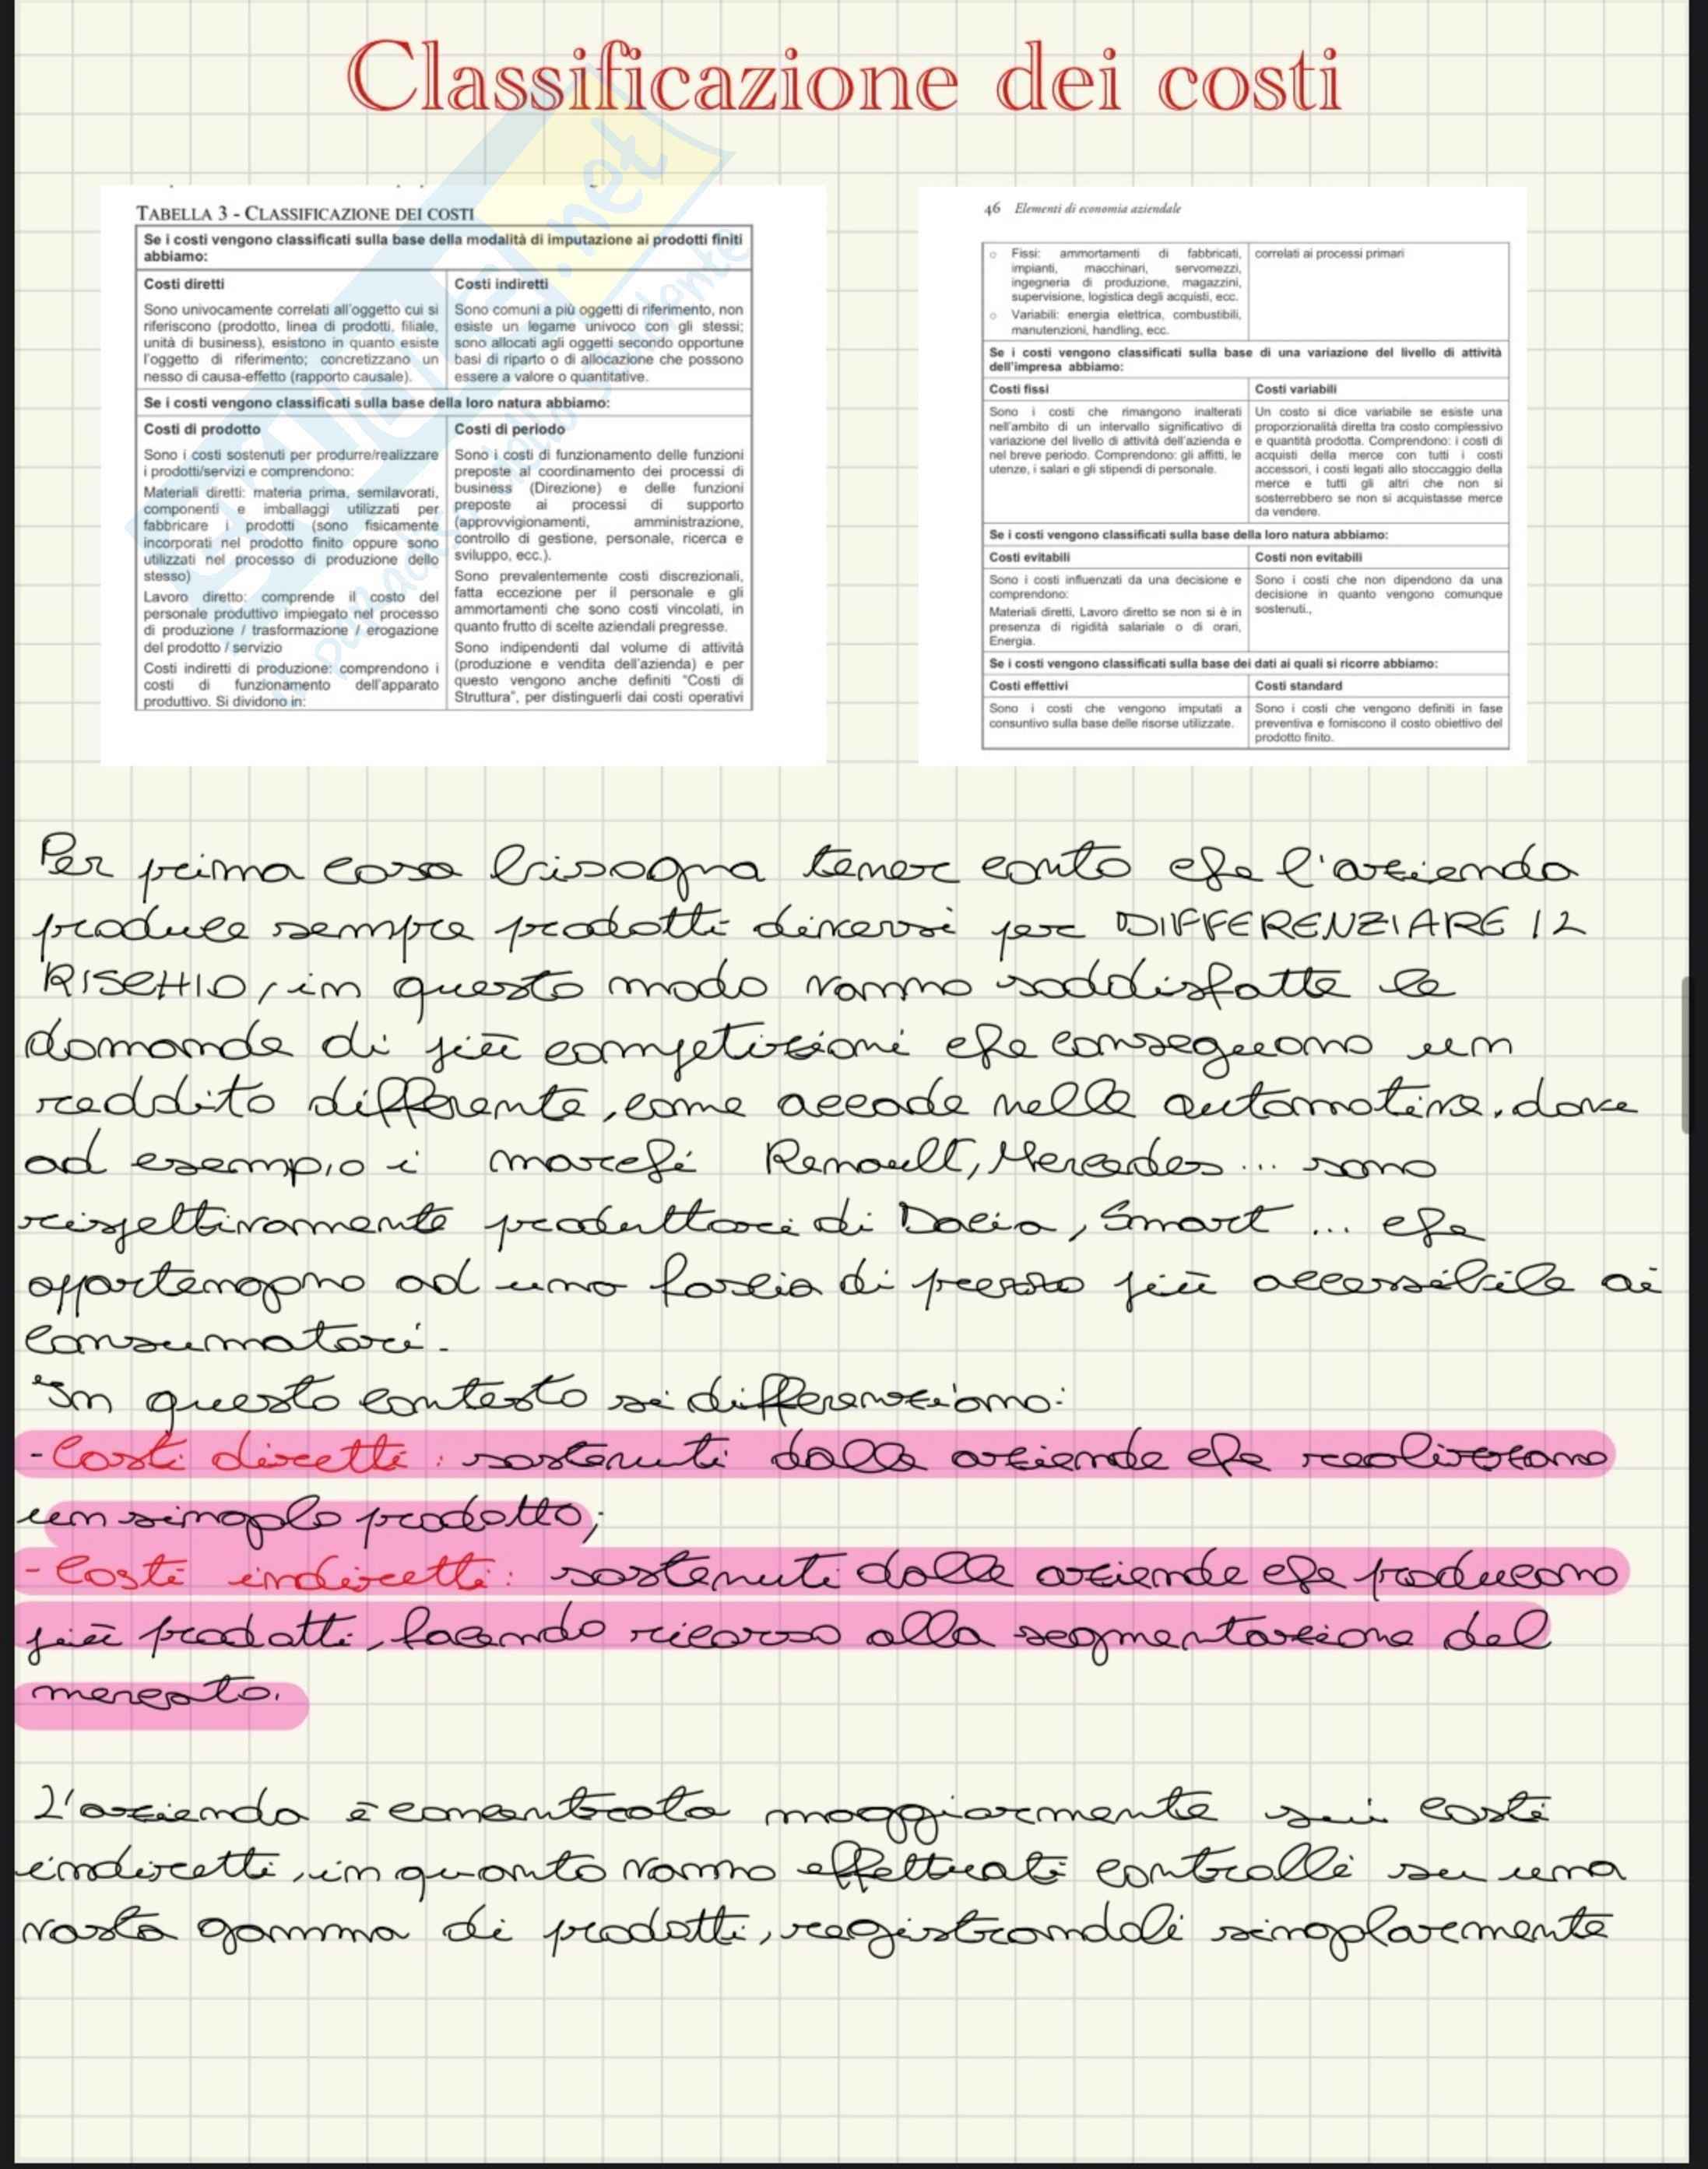 Classificazione dei costi
TABELLA 3 - CLASSIFICAZIONE DEI COSTI
Se i costi vengono classificati sulla base della modalità di imputazione ai prodotti finiti
abbiamo:
Costi diretti
Sono univocamente correlati all'oggetto cui si
riferiscono (prodotto, linea di prodotti, filiale,
unità di business), esistono in quanto esiste
l'oggetto di riferimento; concretizzano un
nesso di causa-effetto (rapporto causale).
Costi indiretti
Sono comuni a più oggetti di riferimento, non
esiste un legame univoco con gli stessi;
sono allocati agli oggetti secondo opportune
basi di riparto o di allocazione che possono
essere a valore o quantitative.
Se i costi vengono classificati sulla base della loro natura abbiamo:
Costi di prodotto
Sono i costi sostenuti per produrre/realizzare
i prodotti/servizi e comprendono:
Materiali diretti: materia prima, semilavorati,
componenti e imballaggi utilizzati per
fabbricare i prodotti (sono fisicamente
incorporati nel prodotto finito oppure sono
utilizzati nel processo di produzione dello
stesso)
Lavoro diretto: comprende il costo del
personale produttivo impiegato nel processo
di produzione / trasformazione / erogazione
del prodotto / servizio
Costi indiretti di produzione: comprendono i
costi di funzionamento dell'apparato
produttivo. Si dividono in:
Costi di periodo
Sono i costi di funzionamento delle funzioni
preposte al coordinamento dei processi di
business (Direzione) e delle funzioni
preposte ai processi di supporto
(approvvigionamenti, amministrazione,
controllo di gestione, personale, ricerca e
sviluppo, ecc.).
Sono prevalentemente costi discrezionali,
fatta eccezione per il personale e gli
ammortamenti che sono costi vincolati, in
quanto frutto di scelte aziendali pregresse.
Sono indipendenti dal volume di attività
(produzione e vendita dell'azienda) e per
questo vengono anche definiti "Costi di
Struttura", per distinguerli dai costi operativi
46 Elementi di economia aziendale
o Fissi: ammortamenti di fabbricati,
impianti, macchinari, servomezzi,
ingegneria di produzione, magazzini,
supervisione, logistica degli acquisti, ecc.
o Variabili: energia elettrica, combustibili,
manutenzioni, handling, ecc.
correlati ai processi primari
Se i costi vengono classificati sulla base di una variazione del livello di attività
dell'impresa abbiamo:
Costi fissi
Sono i costi che rimangono inalterati
nell'ambito di un intervallo significativo di
variazione del livello di attività dell'azienda e
nel breve periodo. Comprendono: gli affitti, le
utenze, i salari e gli stipendi di personale.
Costi variabili
Un costo si dice variabile se esiste una
proporzionalità diretta tra costo complessivo
e quantità prodotta. Comprendono: i costi di
acquisti della merce con tutti i costi
accessori, i costi legati allo stoccaggio della
merce e tutti gli altri che non si
sosterrebbero se non si acquistasse merce
da vendere.
Se i costi vengono classificati sulla base della loro natura abbiamo:
Costi evitabili
Sono i costi influenzati da una decisione e
comprendono:
Materiali diretti, Lavoro diretto se non si è in
presenza di rigidità salariale o di orari,
Energia.
Costi non evitabili
Sono i costi che non dipendono da una
decisione in quanto vengono comunque
sostenuti.,
Se i costi vengono classificati sulla base dei dati ai quali si ricorre abbiamo:
Costi effettivi
Sono i costi che vengono imputati a
consuntivo sulla base delle risorse utilizzate.
Costi standard
Sono i costi che vengono definiti in fase
preventiva e forniscono il costo obiettivo del
prodotto finito.
Per prima cosa bisogna tener conto che l'azienda
produce sempre prodotti diversi per DIFFERENZIARE IL
RISCHIO, in questo modo vanno soddisfatte le
domande di più competizioni che conseguono un
reddito differente, come accade nelle automotive, dove
ad esempio i marchi Renault, Mercedes... sono
rispettivamente produttori di Dacia, Smart ... che
appartengono ad una fascia di prezzo più accessibile ai
consumatori.
In questo contesto si differenziano:
- Costi diretti: sostenuti dalle aziende che realizzano
un singolo prodotto;
- Costi indiretti: sostenuti dalle aziende che producono
più prodotti, facendo ricorso alla segmentazione del
mercato.
L'azienda è concentrata maggiormente sui costi
indiretti, in quanto vanno effettuati controlli su una
vasta gamma di prodotti, registrandoli singolarmente